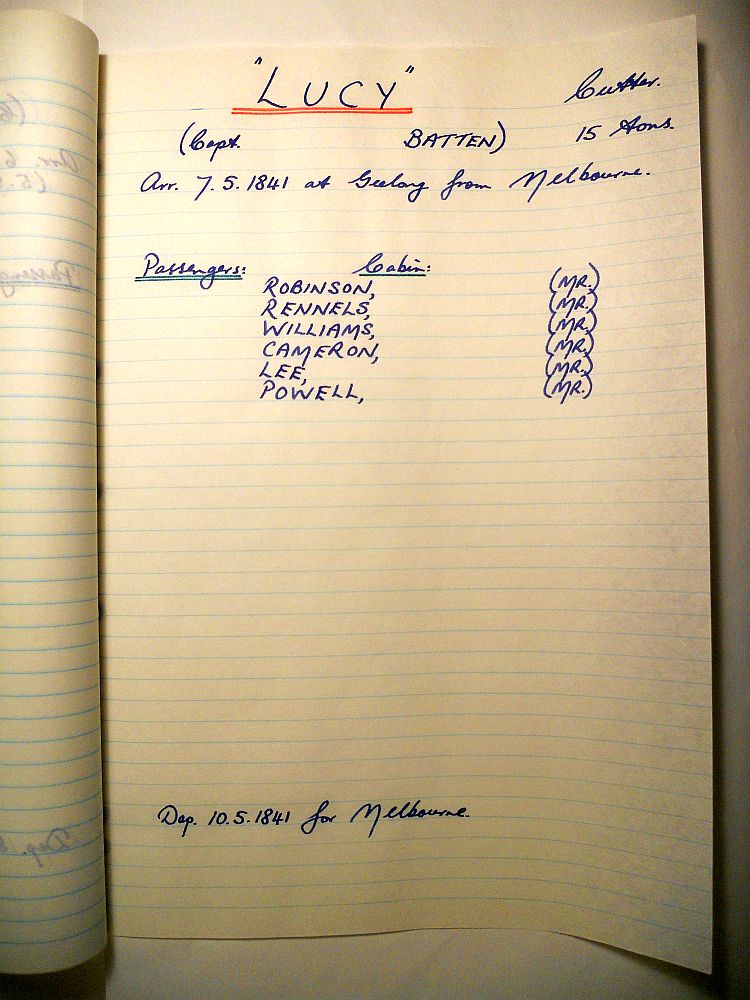 "LUCY" Cutter.
(Capt. BATTEN) 15 Tons.
Arr. 7.5.1841 at Geelong from Melbourne.
Passengers: Cabin:
ROBINSON, (MR.)
RENNELS, (MR.)
WILLIAMS, (MR.)
CAMERON, (MR.)
LEE, (MR.)
POWELL, (MR.)
Dep. 10.5.1841 for Melbourne.